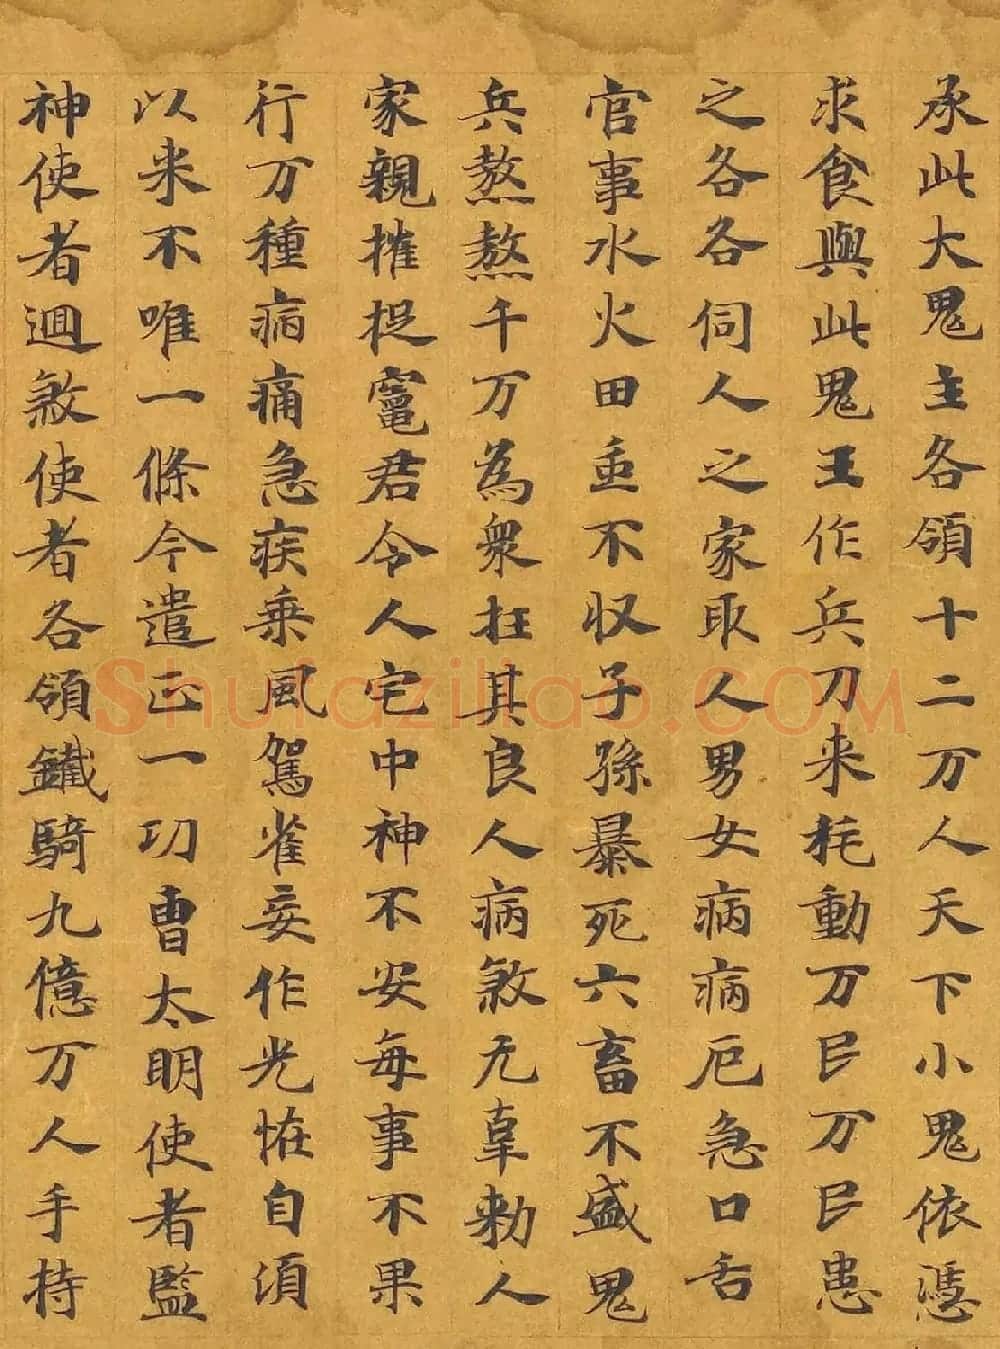 承此大鬼主各領十二万人天下小鬼依憑
求食與此鬼王作兵刀来耗動万民万民患
之各各伺人之家取人男女病病厄急口舌
官事水火田蚕不収子孫暴死六畜不盛鬼
兵熬熬千万為衆枉其良人病煞无辜勑人
家親摧捉竈君令人宅中神不安每事不果
行万種病痛急疾乗風駕雀妄作光恠自須
以来不唯一條今遣正一功曹太明使者監
神使者迴煞使者各領鐵騎九億万人手持
Shufaziliao.COM